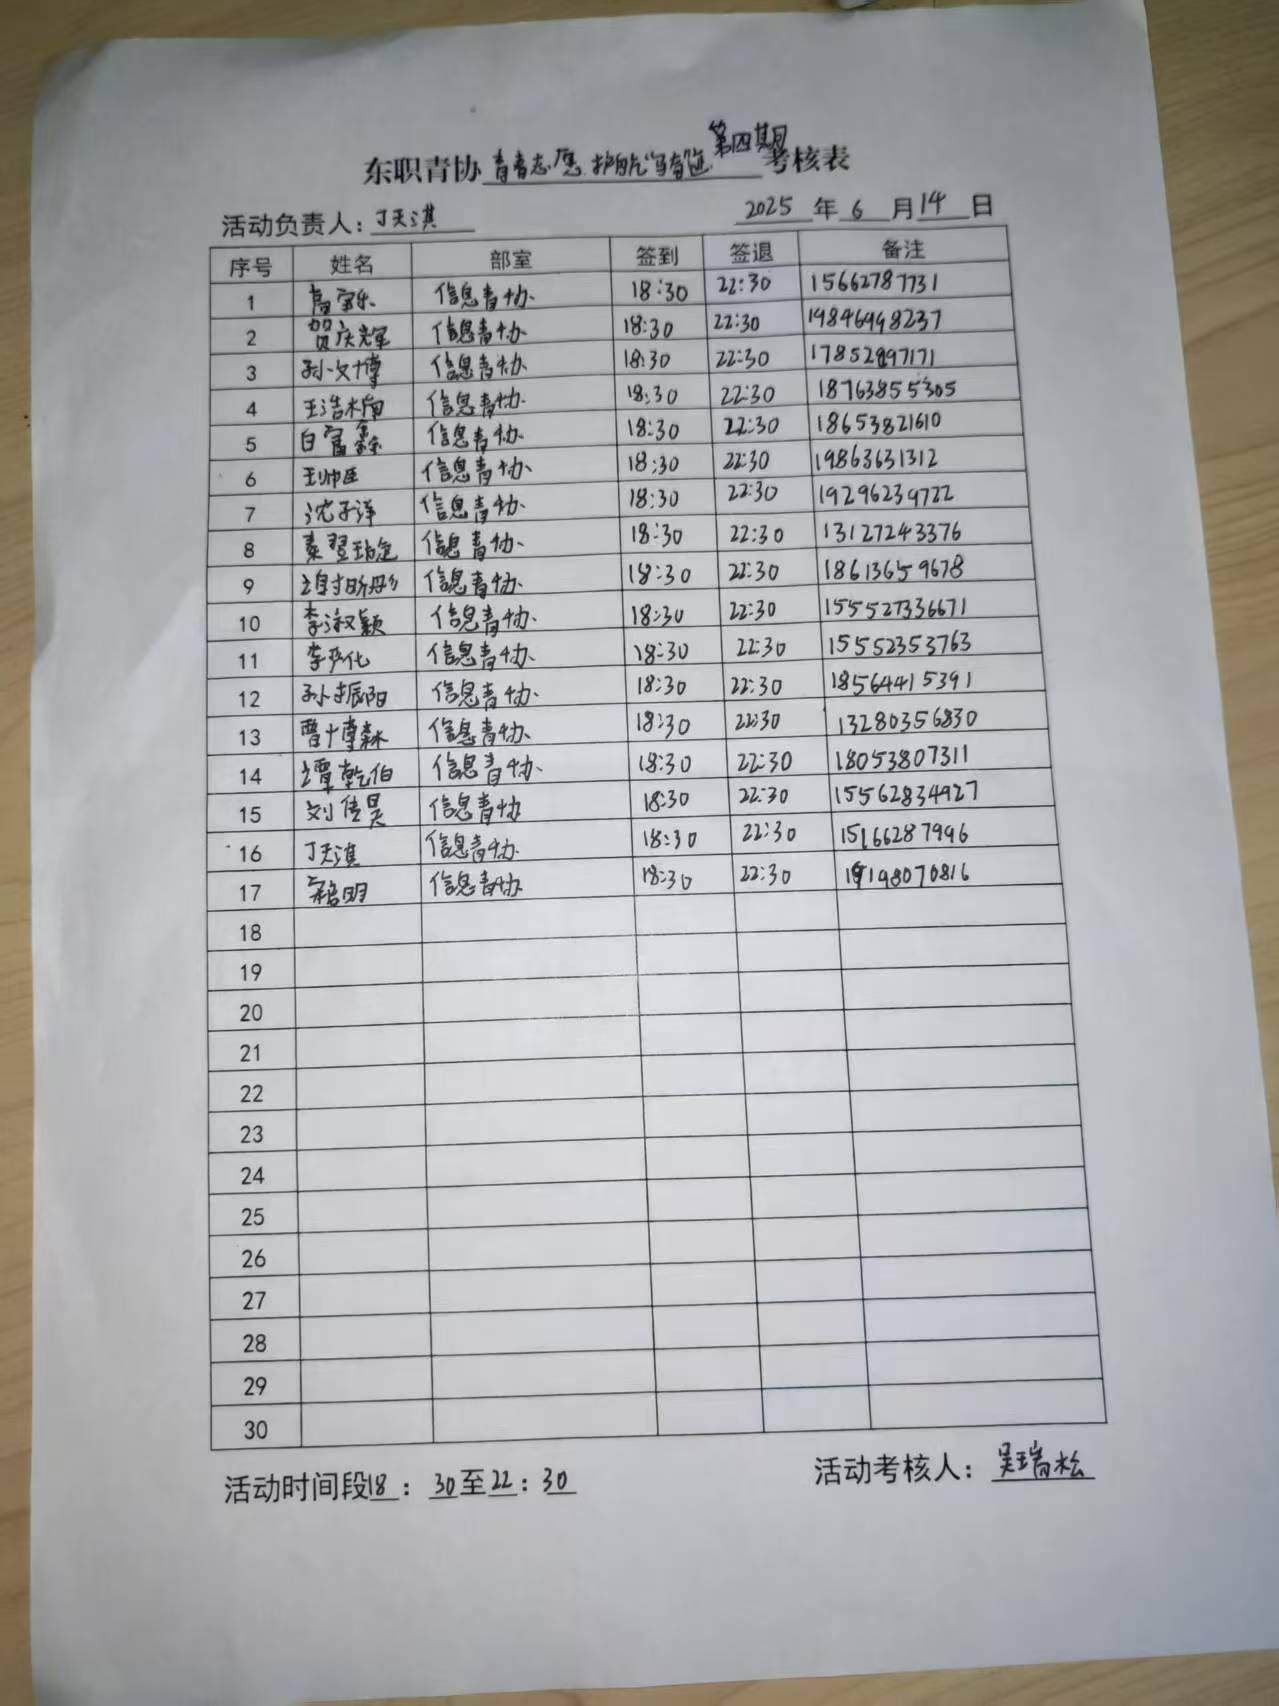 第四期
东职青协 青春志愿 护航"马奋进 考核表
活动负责人：丁天淇 2025 年 6 月 14 日
序号 姓名 部室 签到 签退 备注
1 信息青协 18:30 22:30 15662787731
2 贺庆辉 信息青协 18:30 22:30 19846998237
3 孙文博 信息青协 18:30 22:30 17852897171
4 王浩楠 信息青协 18:30 22:30 18763855305
5 白富鑫 信息青协 18:30 22:30 18653821610
6 王帅臣 信息青协 18:30 22:30 19863631312
7 沈子洋 信息青协 18:30 22:30 19296239722
8 信息青协 18:30 22:30 13127243376
9 信息青协 18:30 22:30 18613659678
10 李淑颖 信息青协 18:30 22:30 155527336671
11 信息青协 18:30 22:30 15552353763
12 孙振阳 信息青协 18:30 22:30 18564415391
13 曹博森 信息青协 18:30 22:30 13280356830
14 谭乾伯 信息青协 18:30 22:30 18053807311
15 刘传昊 信息青协 18:30 22:30 15562834927
16 丁天淇 信息青协 18:30 22:30 15166287996
17 信息青协 18:30 22:30 19198070816
18
19
20
21
22
23
24
25
26
27
28
29
30
活动时间段18：30至22：30 活动考核人：吴瑞松